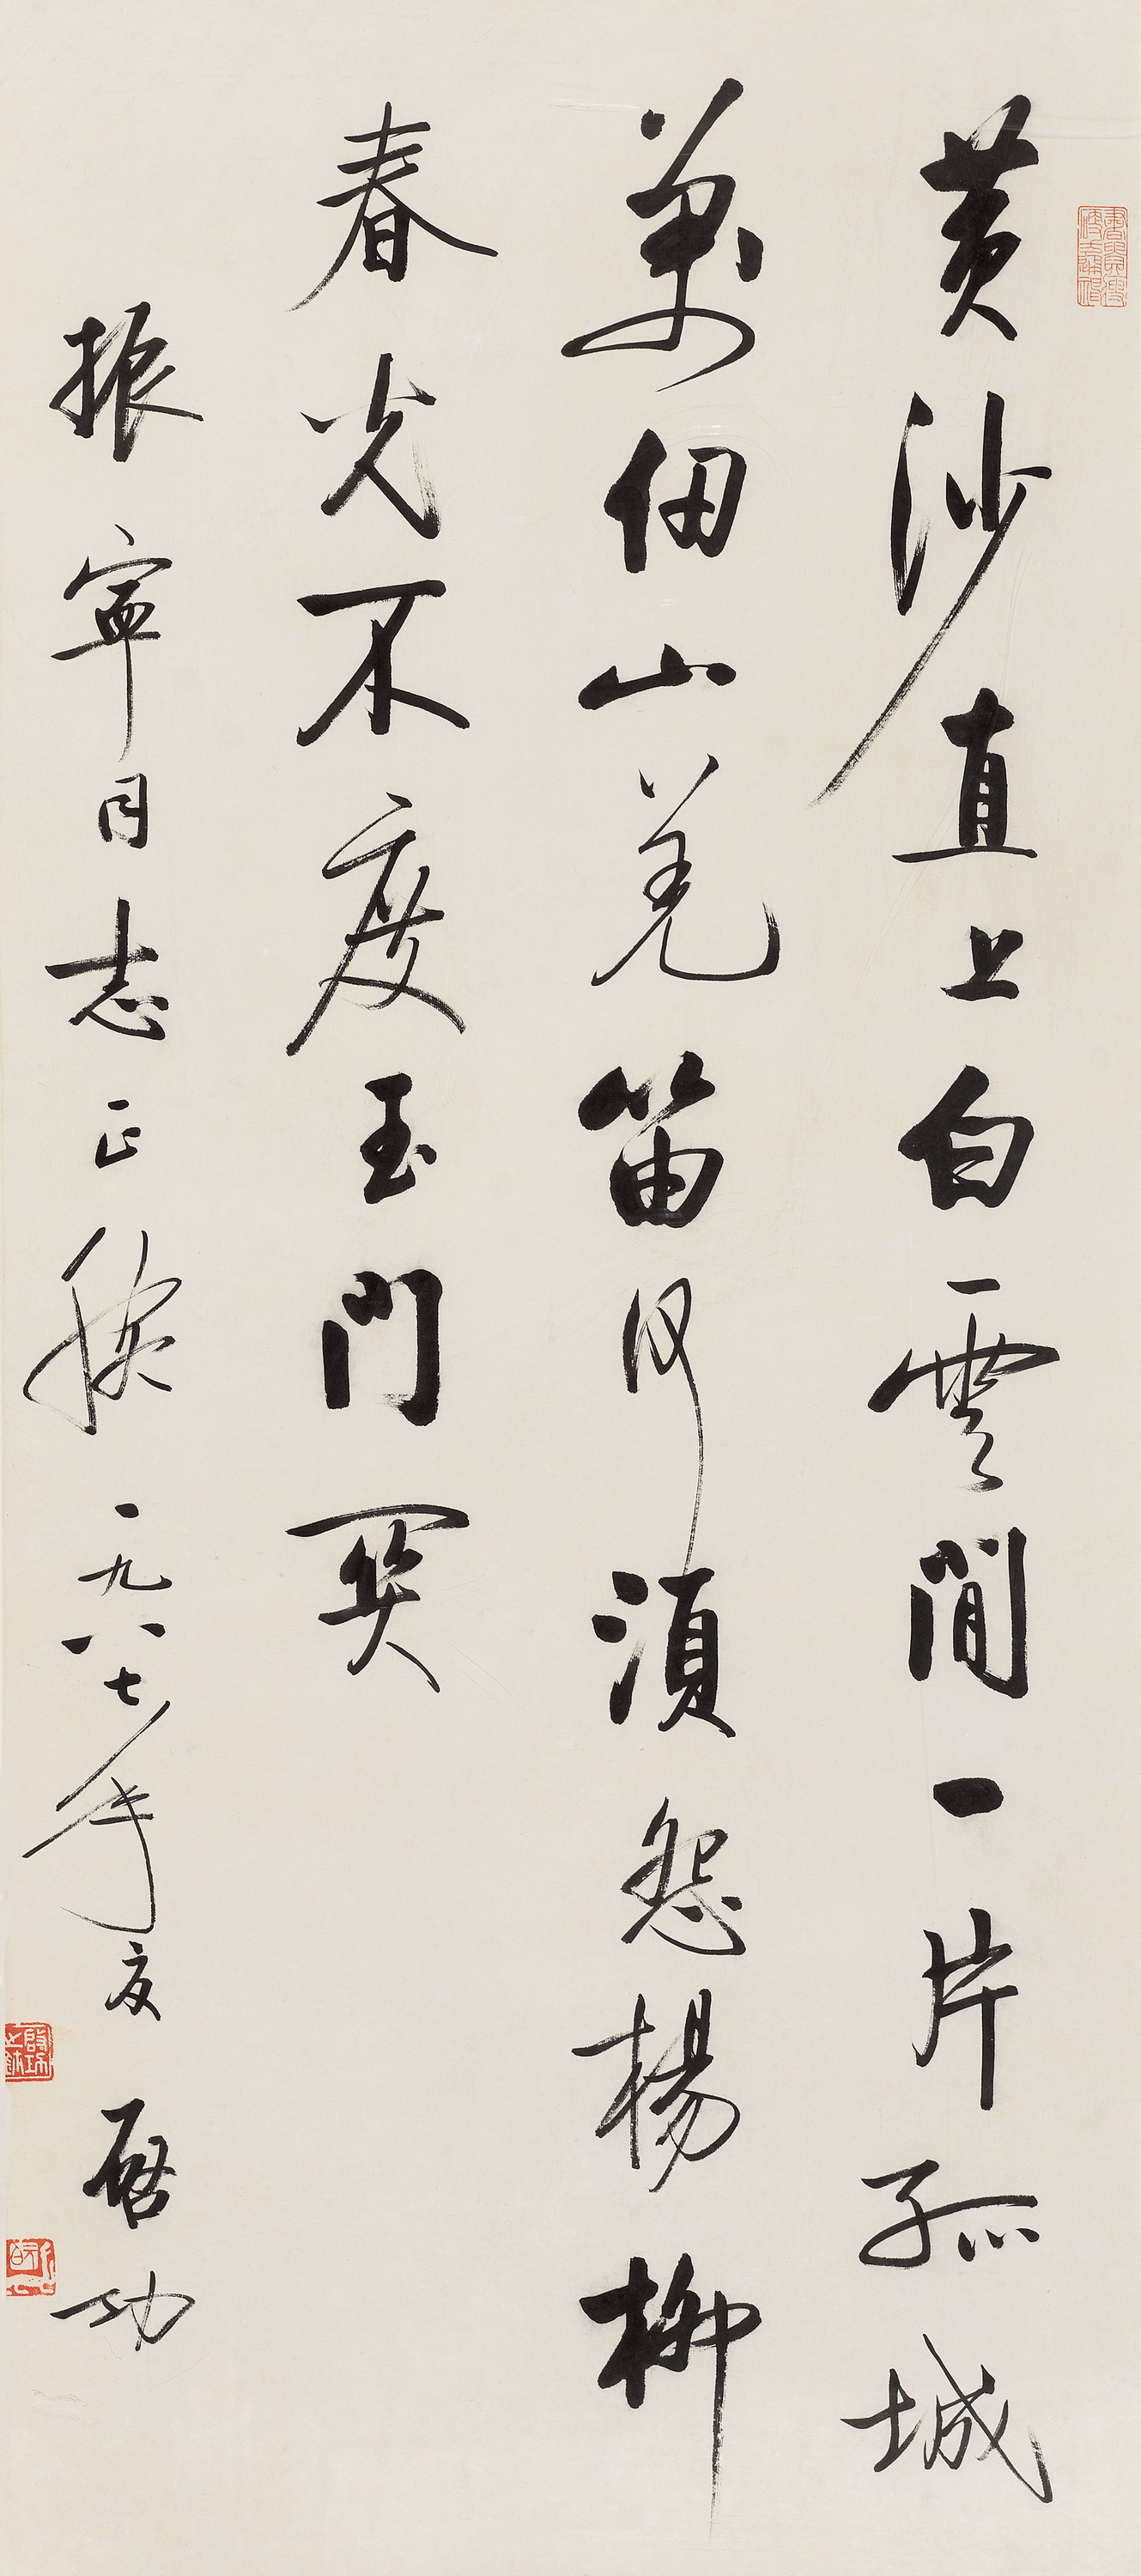 黄沙直上白雲間一片孤城
萬仞山羌笛何須怨楊柳
春光不度玉門關
振寧同志正腕一九八七年夏啟功
啟功